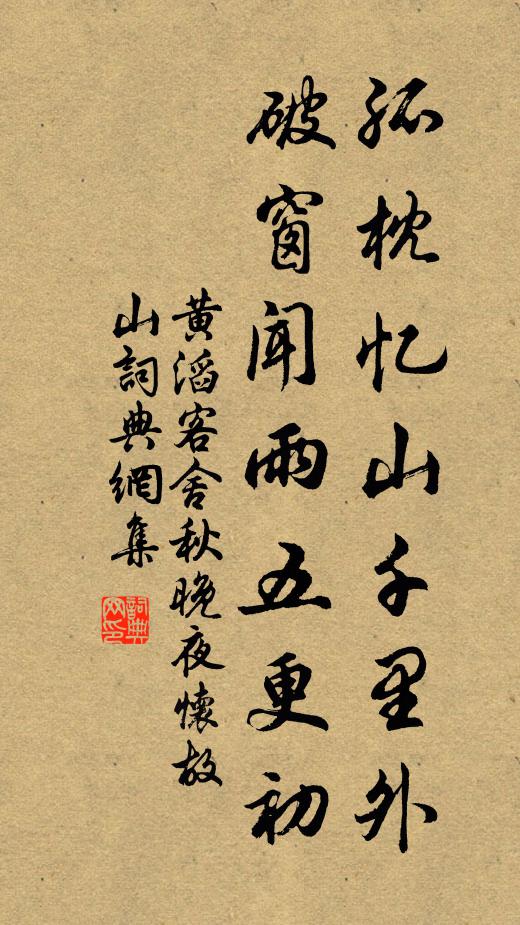 孤枕忆山千里外
破窗聞雨五更初
黄滔客舍秋晚夜懷故
山詞典網集
詞典
网印